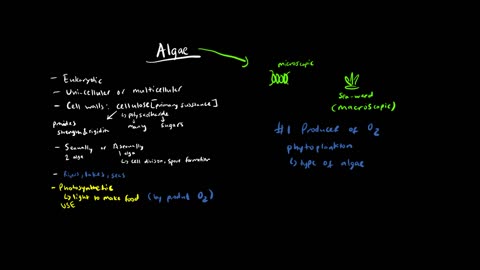 Algae
- Eukaryotic
- Uni-cellular or multicellular
- Cell walls: cellulose [primary substance]
↳ polysaccharide
many sugars
Provides
strength & rigidity
- Sexually or Asexually
2 alga
1 alga
↳ cell division, spore formation
- Rivers, lakes, seas
- Photosynthetic
↳ light to make food (by product O2)
USE
microscopic
Sea-weed
(macroscopic)
#1 Producer of O2
phytoplankton
↳ type of algae